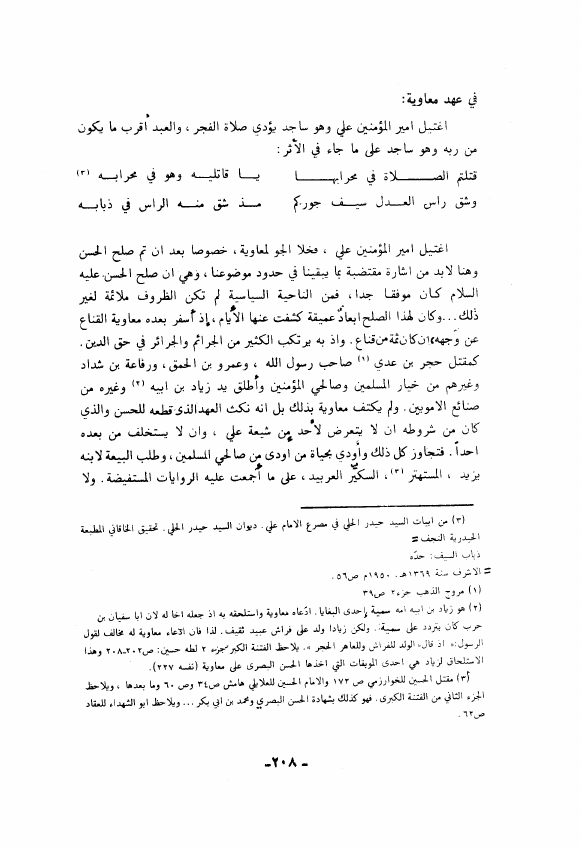 في عهد معاوية:
اغتيل امير المؤمنين علي وهو ساجد يؤدي صلاة الفجر، والعبد أقرب ما يكون
من ربه وهو ساجد على ما جاء في الأثر:
قتلتم الصـــــلاة في محرابهـــــا يـــا قاتليـــه وهو في محرابـــه (٣)
وشق راس العـــدل سيـــف جوركم مـــذ شق منـــه الراس في ذبابـــه
اغتيل امير المؤمنين علي ، فخلا الجو لمعاوية، خصوصا بعد ان تم صلح الحسن
وهنا لابد من اشارة مقتضبة بما يبقينا في حدود موضوعنا، وهي ان صلح الحسن عليه
السلام كان موفقا جدا، فمن الناحية السياسية لم تكن الظروف ملائمة لغير
ذلك...وكان لهذا الصلح ابعاد عميقة كشفت عنها الأيام، إذ أسفر بعده معاوية القناع
عن وجهه ان كان ثمة من قناع. واذ به يرتكب الكثير من الجرائم والجرائر في حق الدين.
كمقتل حجر بن عدي (١) صاحب رسول الله ، وعمرو بن الحمق، ورفاعة بن شداد
وغيرهم من خيار المسلمين وصالحي المؤمنين وأطلق يد زياد بن ابيه (٢) وغيره من
صنائع الامويين. ولم يكتف معاوية بذلك بل انه نكث العهد الذي قطعه للحسن والذي
كان من شروطه ان لا يتعرض لأحد من شيعة علي ، وان لا يستخلف من بعده
احداً. فتجاوز كل ذلك وأودي بحياة من اودى من صالحي المسلمين، وطلب البيعة لابنه
يزيد ، المستهتر (٣)، السكير العربيد، على ما أجمعت عليه الروايات المستفيضة. ولا
(٣) من ابيات السيد حيدر الحلي في مصرع الامام علي. ديوان السيد حيدر الحلي. تحقيق الخاقاني المطبعة
الحيدرية النجف =
ذباب السيف: حدّه
= الاشرف سنة ١٣٦٩هـ. ١٩٥٠م ص٥٦.
(١) مروج الذهب جزء٢ ص٣٩
(٢) هو زياد بن ابيه امه سمية إحدى البغايا. ادّعاه معاوية واستلحقه به اذ جعله اخا له لان ابا سفيان بن
حرب كان يتردد على سمية.. ولكن زيادا ولد على فراش عبيد ثقيف. لذا فان الآعاء معاوية له مخالف لقول
الرسول:« اذ قال» الولد للفراش وللعاهر الحجر ». يلاحظ الفتنة الكبرى جزء ٢ لطه حسين: ص٢٠٢ـ٢٠٨ وهذا
الاستلحاق لزياد هي احدى الموبقات التي اخذها الحسن البصري على معاوية (نفسه ٢٢٧).
(٣) مقتل الحسين للخوارزمي ص ١٧٢ والامام الحسين للعلايلي هامش ص٣٤ وص ٦٠ وما بعدها ، ويلاحظ
الجزء الثاني من الفتنة الكبرى. فهو كذلك بشهادة الحسن البصري ومحمد بن ابي بكر... ويلاحظ ابو الشهداء للعقاد
ص٦٢.
ـ ٢٠٨ـ